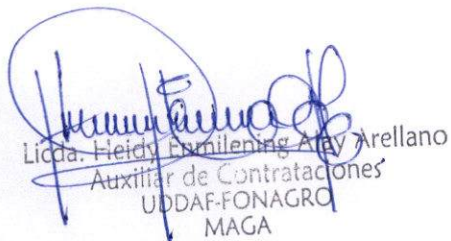 Licda. Heidy Enmilening Atay Arellano
Auxiliar de Contrataciones
UDDAF-FONAGRO
MAGA